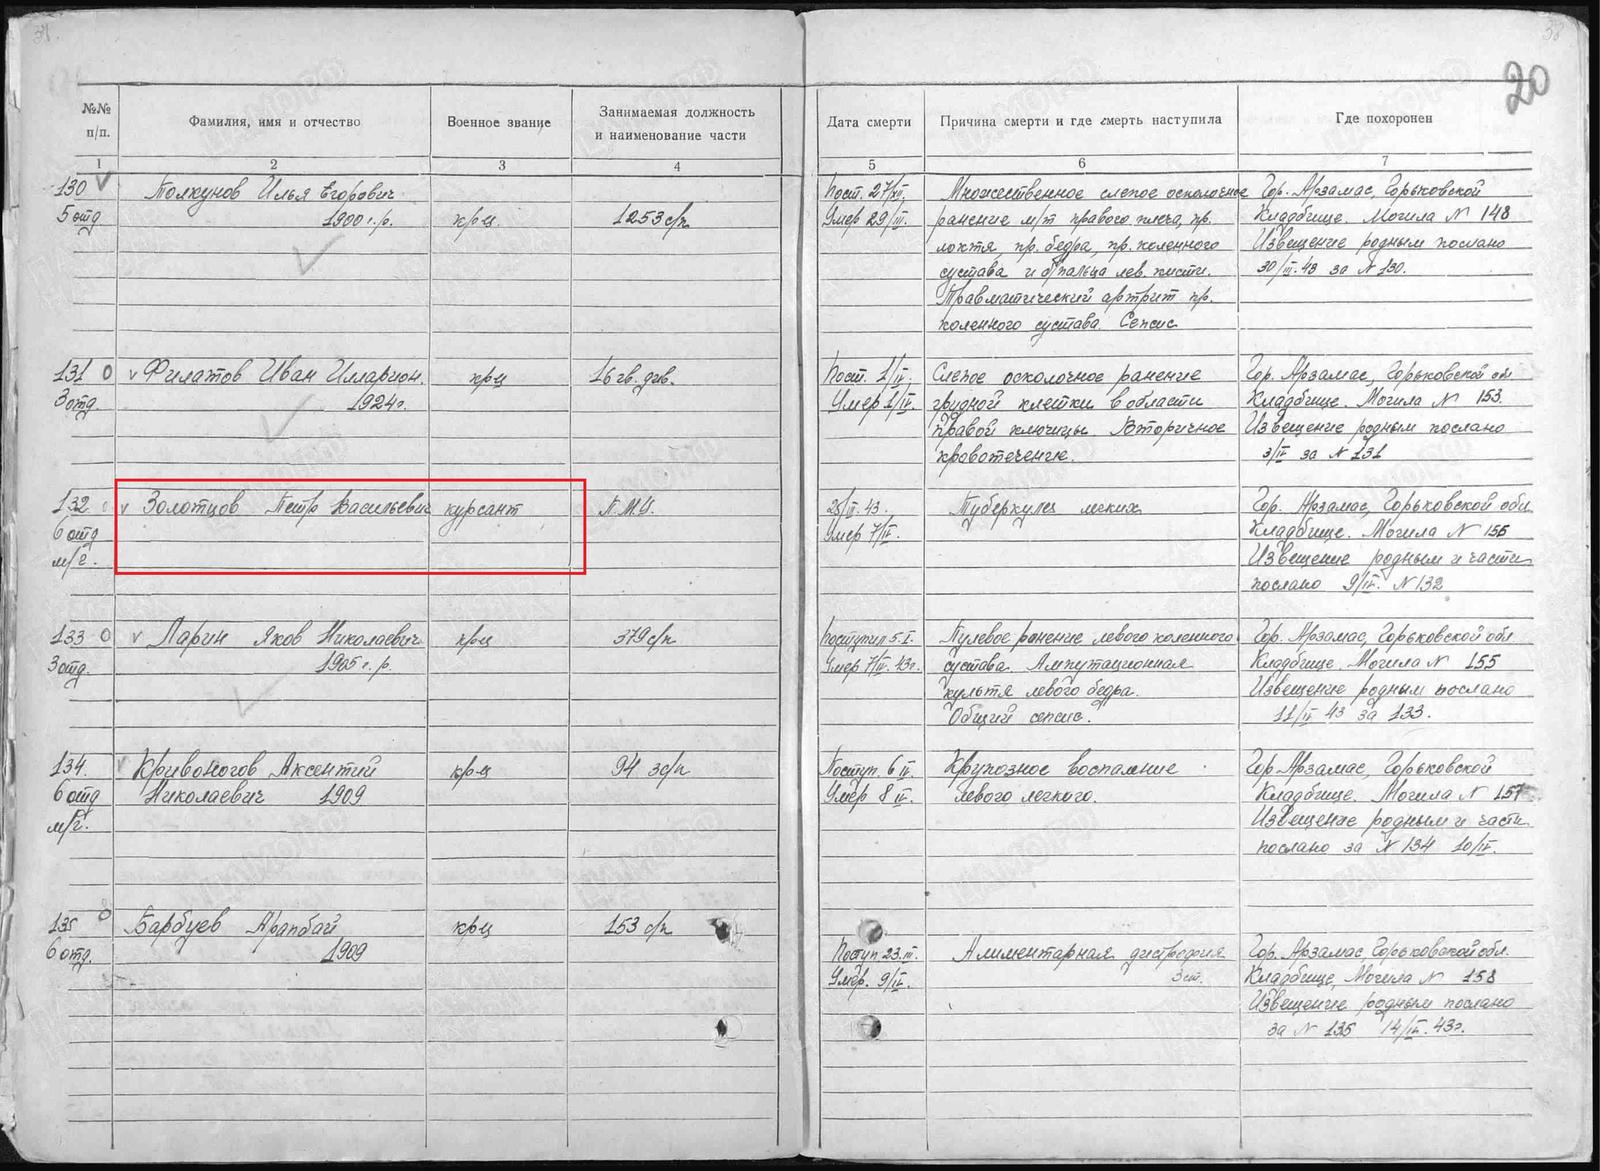 20
№№ п/п.
Фамилия, имя и отчество
Военное звание
Занимаемая должность и наименование части
Дата смерти
Причина смерти и где смерть наступила
Где похоронен
1 2 3 4 5 6 7
130 Толкунов Илья Егорович Пост. 27/III. Множественное слепое осколочное Гор. Арзамас, Горьковской
5 отд 1900 г.р. крц. 1253 с/п Умер 29/III. ранение м/т правого плеча, пр. Кладбище. Могила N 148
локтя, пр. бедра, пр. коленного Извещение родным послано
сустава и пальца лев. кисти. 30/III.43 за N 130.
Травматический артрит пр.
коленного сустава. Сепсис
131 0 v Филатов Иван Илларион. крц 16 гв. див. Пост. 1/IV. Слепое осколочное ранение Гор. Арзамас, Горьковской обл
3 отд. 1924г. Умер 1/IV. грудной клетки в области Кладбище. Могила N 153.
правой ключицы. Вторичное Извещение родным послано
кровотечение. 3/IV за N 131
132 v Золотцов Петр Васильевич курсант 43. Туберкулез легких Гор. Арзамас, Горьковской обл
6 отд Умер 7/IV. Кладбище. Могила N 156
Извещение родным и части
послано 9/IV. N 132
133 0 v Ларин Яков Николаевич крц 379 с/п Поступил 5.I. Пулевое ранение левого коленного Гор. Арзамас, Горьковской обл
3 отд. 1905 г.р. Умер 7/IV. 43г. сустава. Ампутационная Кладбище, Могила N 155
культя левого бедра. Извещение родным послано
Общий сепсис. 11/IV 43 за 133.
134. v Кривоногов Аксентий крц 94 зсп Поступ. 6 IV. Крупозное воспаление Гор. Арзамас, Горьковской
6 отд Николаевич 1909 Умер 8 IV. левого легкого. Кладбище. Могила N 157
Извещение родным и части
послано за N 134 10/IV.
135 0 Барбуев Арапбай крц 153 с/п
6 отд. 1909 Поступ. 23.III. Алиментарная дистрофия Гор. Арзамас, Горьковской обл.
Умер. 9/IV. 3 ст. Кладбище, Могила N 158
Извещение родным послано
за N 135 14/IV. 43г.